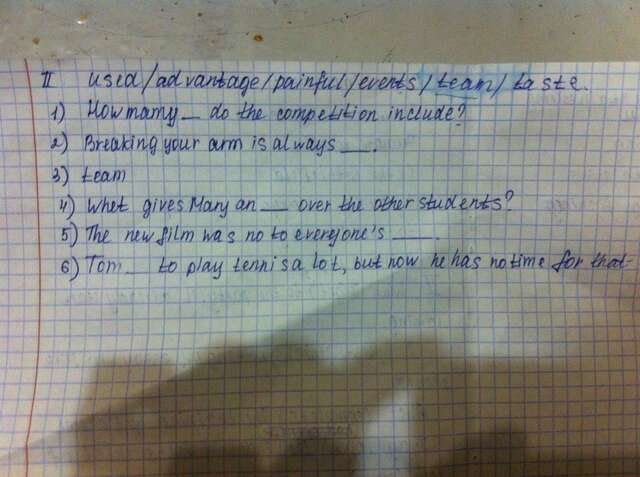 II used/advantage/painful/events/team/taste.
1) How mamy __ do the competition include?
2) Breaking your arm is always ___.
3) team
4) Whet gives Mary an ___ over the other students?
5) The new film was no to everyone's ____.
6) Tom __ to play tennis a lot, but now he has no time for that.